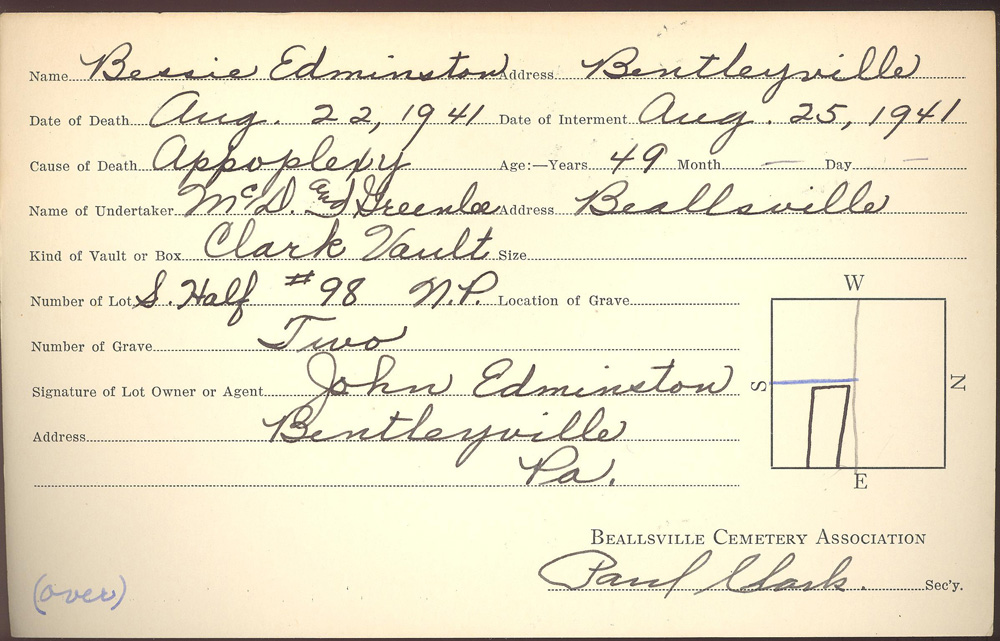 Name Bessie Edminston Address Bentleyville
Date of Death Aug. 22, 1941 Date of Interment Aug. 25, 1941
Cause of Death Appoplexy Age:—Years 49 Month — Day —
Name of Undertaker McD. and Greenlee Address Beallsville
Kind of Vault or Box Clark Vault Size
Number of Lot S. Half #98 N.P. Location of Grave
Number of Grave Two
Signature of Lot Owner or Agent John Edminston
Address Bentleyville
Pa.
W
S
N
E
BEALLSVILLE CEMETERY ASSOCIATION
Paul Clark. Sec'y.
(over)